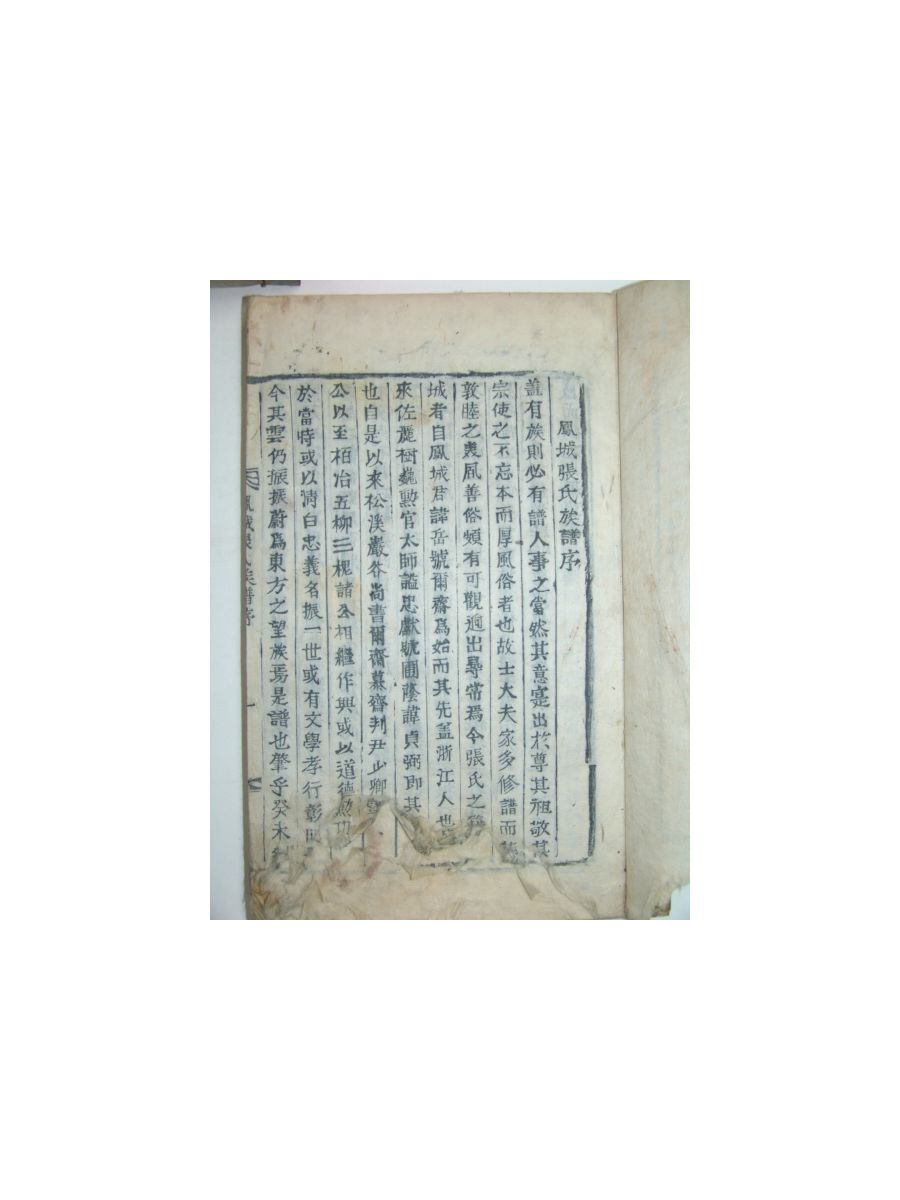 鳳城張氏族譜序
盖有族則必有譜人事之當然其意寔出於尊其祖敬其
宗使之不忘本而厚風俗者也故士大夫家多修譜而
敦睦之義風善俗頗有可觀迥出尋常焉今張氏之
城者自鳳城君諱岳號爾齋爲始而其先盖浙江人也
來佐麗樹巍勲官太師謚忠獻號圃蔭諱貞弼即其
也自是以來松溪巖谷尚書爾齋慕齋判尹少卿
公以至栢冶五柳三槐諸公相繼作興或以道德
於當時或以淸白忠義名振一世或有文學孝行彰
今其雲仍振振蔚爲東方之望族焉是譜也肇乎癸未
氏族譜序